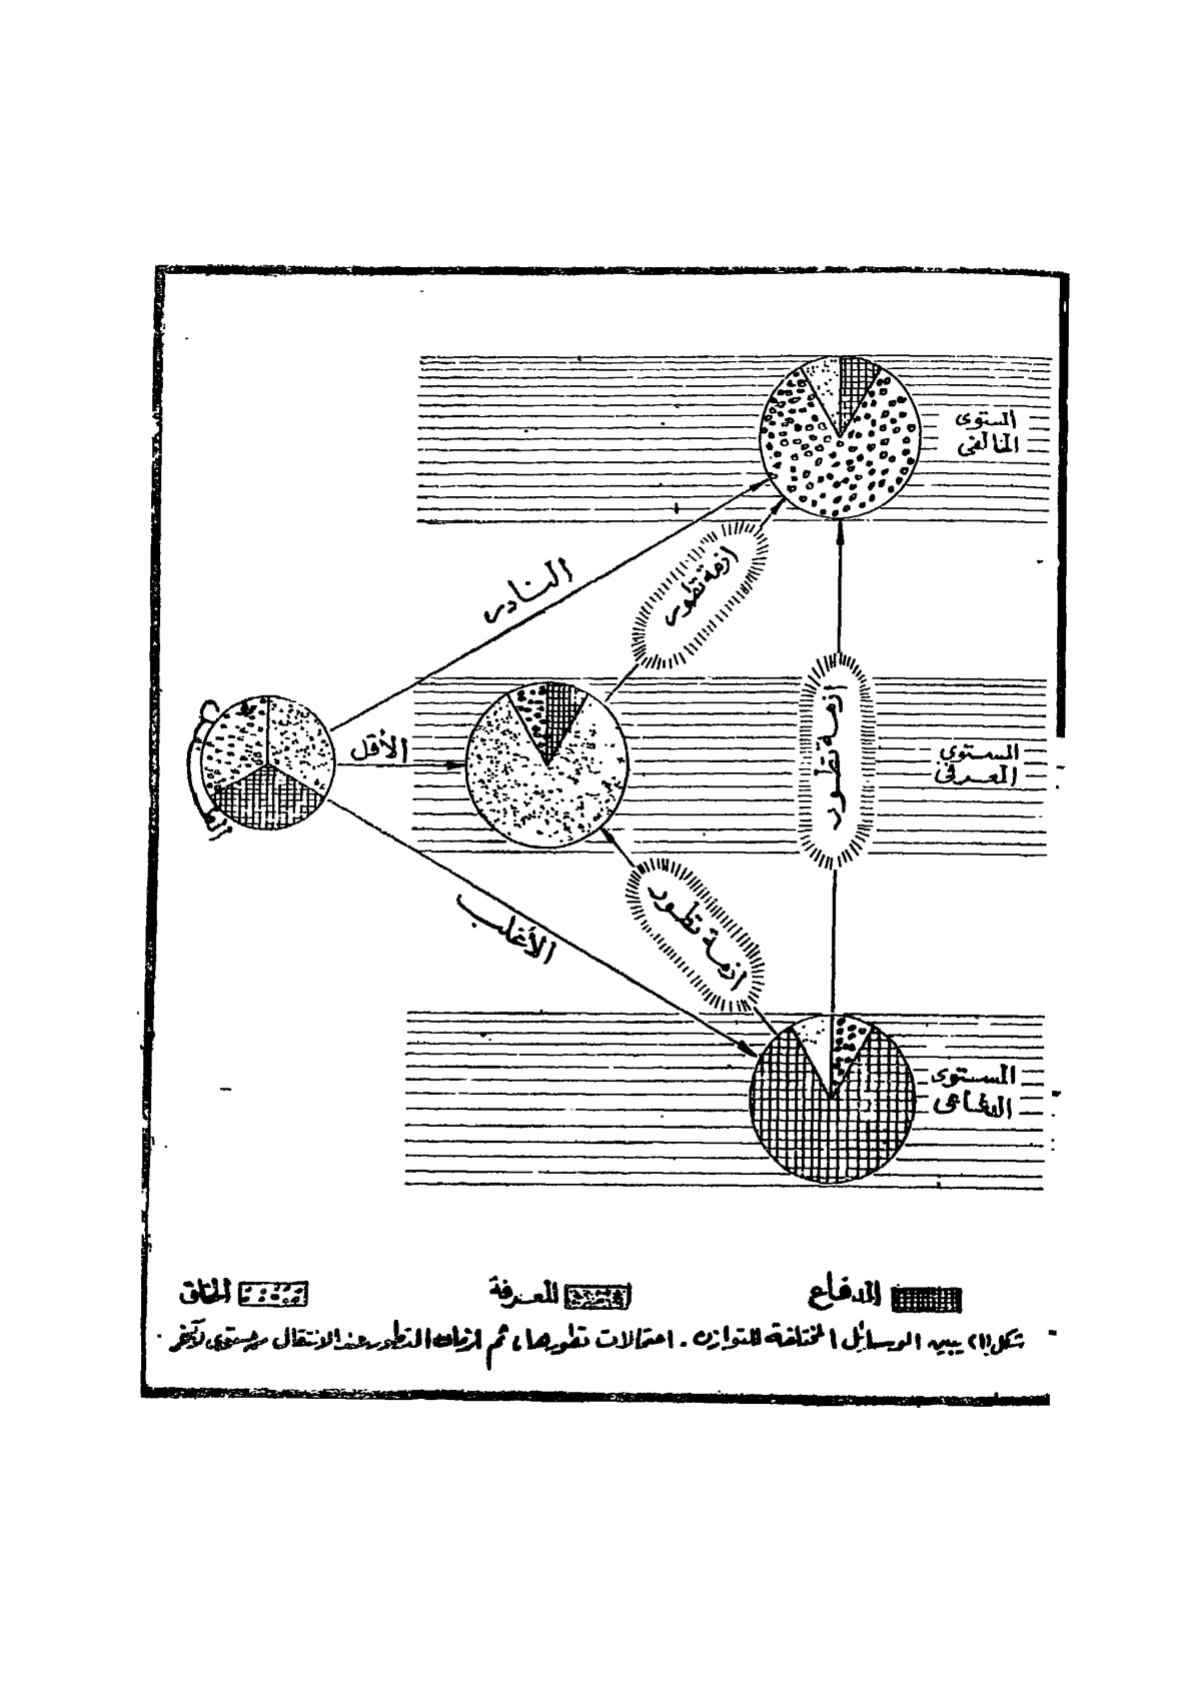 المستوى
الخالقى
النادر
ازمة تطور
المستوى
المعرفى
ازمة تطور
الأقل
ازمة تطور
الأغلب
المستوى
الدفاعى
الدفاع
المعرفة
الخلق
شكل (١) يبين الوسائل المختلفة للتوازن . احتمالات تطورها ، ثم ازمات التطور عند الانتقال من مستوى لآخر